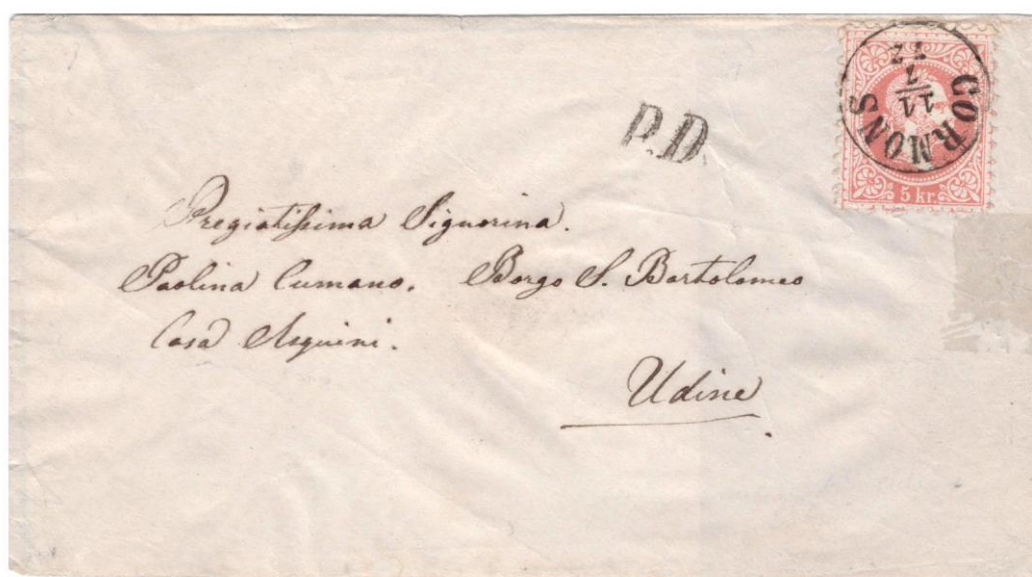 CORMONS
11
7
72
5 kr.
P.D.
Pregiatissima Signorina.
Paolina Cumano. Borgo S. Bortolomeo
Casa Asquini.
Udine